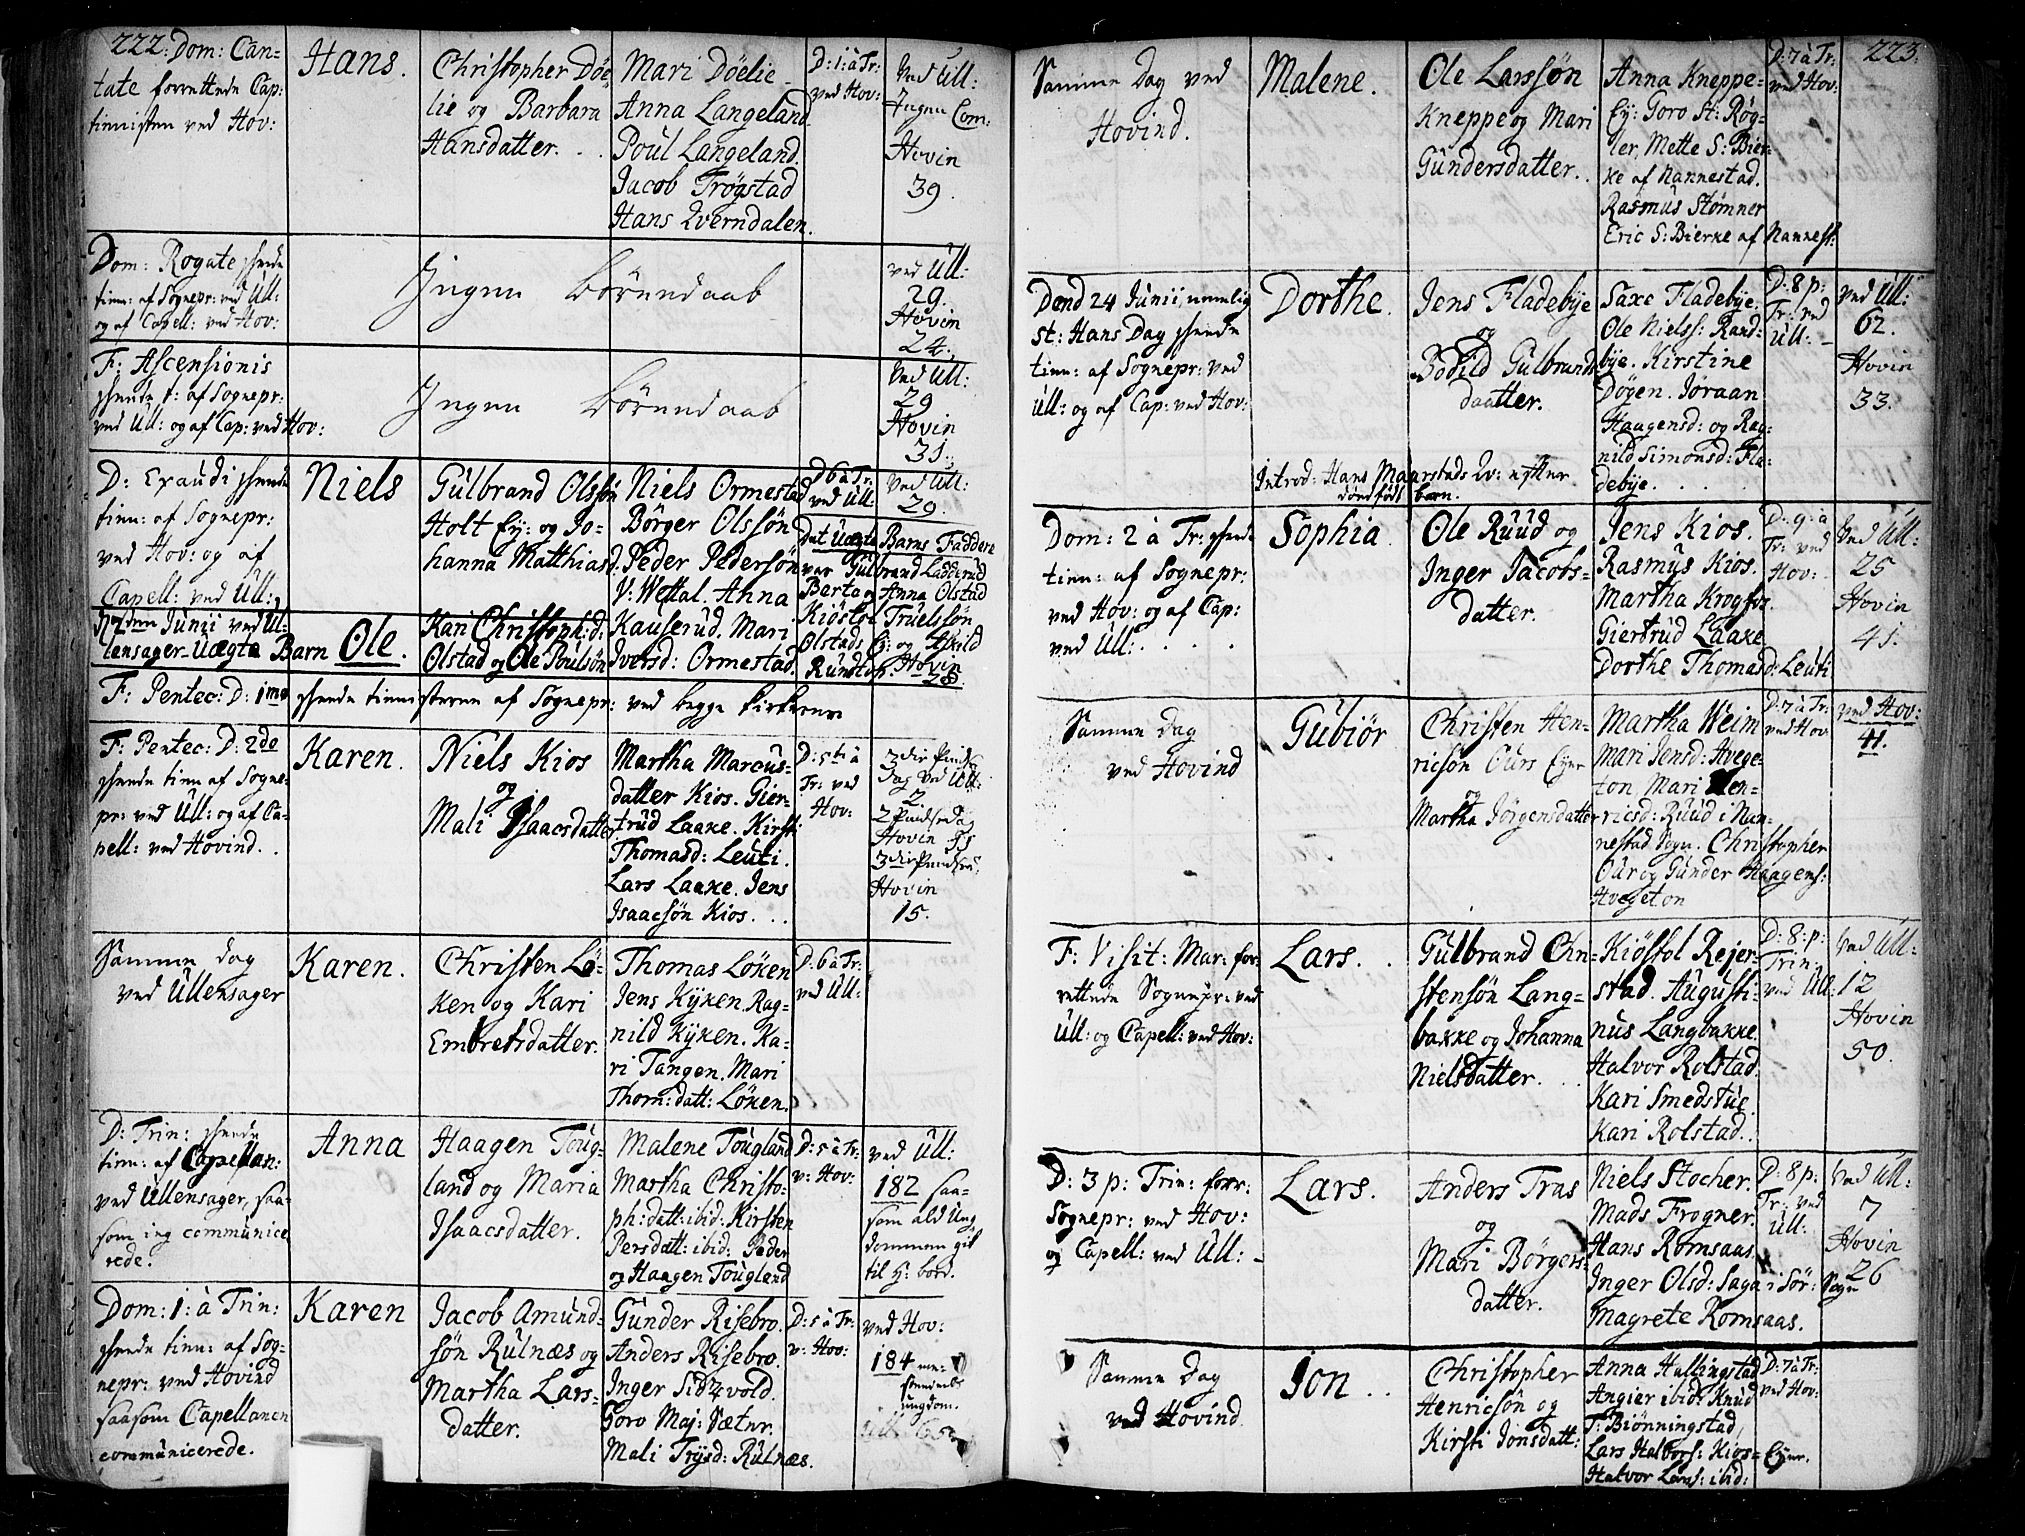 222. Dom: Can=
tate forrettede Cap:
tinnisten ved Hov:
Hans.
Christopher Döe
lie og Barbara
Hansdatter. . .
Mari Döelie
Anna Langeland
Poul Langeland.
Jacob Trögstad
Hans Qverndalen.
D: 1: à Tr:
ved Hov:
Ved Ull:
Ingen Com:
Hovin
39.
Dom: Rogate skeede
tinn: af Sognepr: ved Ull:
og af Capell: ved Hov:
Ingen Börnedaab
ved Ull:
29.
Hovin
24.
F: Ascensionis
skeede t: af Sognepr:
ved Ull: og af Cap: ved Hov:
Ingen Börnedaab
Ved Ull:
29
Hovin
31.
D: Exaudi skeede
tinn: af Sognepr:
ved Hov: og af
Capell: ved Ull:
Niels
Gulbrand Olssön
Holt Ey: og Jo=
hanna Matthiasd.
Niels Ormestad
Börger Olssön
Peder Pedersön
V: Wettal. Anna
Kauserud. Mari
Iversd: Ormestad.
D 6 à Tr.
ved Ull:
Ved Ull:
29.
Det Uægte Barns Faddere
var Gulbrand Ladderud
Berta og Anna Olstad
Kiöstol Truelssön
Olstads Ey: og Askild
Rundtop.
Hovin
28.
Junii ved Ul=
lensager Uægte Barn Ole.
Kari Christoph: d:
Olstad og Ole Poulsön
F: Pentec: D: 1me skeede tinnisterne af Sognepr: ved begge Kirkerne
F: Pentec: D: 2de
skeede tinn af Sogne=
pr: ved Ull: og af Ca=
pell: ved Hovind. .
Karen.
Niels Kios
og
Mali Isaacsdatter
Martha Marcus=
datter Kios. Gier=
trud Laake. Kirsti
Thomasd: Leuti.
Lars Laake. Jens
Isaacsön Kios. . .
D: 5ti à
Tr: ved
Hov:
3die Pinds
dag ved Ull:
2.
2 Pindsedag
Hovin 55
3die Pindse:
Hovin
15.
Samme Dag
ved Ullensager
Karen.
Christen Lö=
ken og Kari
Embretsdatter.
Thomas Löken
Jens Kyken. Rag=
nild Kyken. Ka=
ri Tangen. Mari
Thom: datt: Löken.
D: 6 à Tr:
ved Ull:
D: Trin: skeede
tinn: af Capellan:
ved Ullensager, saa=
som ieg communice
rede.
Anna
Haagen Toug=
land og Maria
Isaacsdatter.
Malene Tougland
Martha Christo=
ph: datt: ibid: Kirsten
Persdatt: ibid: Peder
og Haagen Tougland
D: 5 à Tr:
v: Hov:
ved Ull:
182 saa=
som ald Ung
dommen gik
til H: bord.
Dom: 1: à Trin:
skeede tinn: af Sog=
nepr: ved Hovind
saasom Capellanen
communicerede.
Karen
Jacob Amund=
sön Rulnæs og
Martha Lars=
datter.
Gunder Risebro.
Anders Risebro.
Inger Sidzvold.
Goro Maj: Sætnr.
Mali Trysd: Rulnæs.
D: 5 à Tr:
v: Hov:
ved Hov:
184 me=
steendeels
ungdom.
Samme Dag ved
Hovind.
Malene.
Ole Larssön
Kneppe og Mari
Gundersdatter.
Anna Kneppe=
Ey: Goro St: Røg=
ler, Mette S: Bier=
ke af Nannestad.
Rasmus Stömner
Eric S: Bierke af Nannest:
D: 7 à Tr:
ved Hov:
223.
Dend 24 Junii, nemlig
St: Hans Dag skeede
tinn: af Sognepr: ved
Ull: og af Cap: ved Hov:
Dorthe.
Jens Fladebye
og
Bodild Gulbrands
daatter.
Saxe Fladebye.
Ole Nielss: Rand=
bye. Kirstine
Døgen. Jøraan
Haagensd: og Rag=
nild Simonsd: Fla=
debye. . . . .
D: 8 p:
Tr: ved
Ull:
Ved Ull:
62.
Hovin
33.
Introd: Hans Maarstads Qv: efter
dödfödt barn.
Dom: 2 à Tr: skeede
tinn: af Sognepr:
ved Hov: og af Cap:
ved Ull: . . . .
Sophia.
Ole Ruud og
Inger Jacobs=
datter.
Jens Kios.
Rasmus Kios.
Martha Krogfos.
Giertrud Laake
Dorthe Thomasd: Leuti
D: 9: à
Tr: ved
Hov:
Ved Ull:
25
Hovin
41.
Samme Dag
ved Hovind
Gubiör
Christen Hen=
ricsön Ours Eyer
og
Martha Jörgensdatter
Martha Weim
Mari Jensd: Hvege=
ton. Mari Hen=
ricsd: Ruud i Nan=
nestad Sogn. Christopher
Our og Gunder Haagens:
Hvegeton
D: 7 à Tr:
ved Hov
ved Hov:
41.
F: Visit: Mar: for=
rettede Sognepr: ved
Ull: og Capell: ved Hov:
Lars. .
Gulbrand Chri=
stensön Lang=
bakke og Johanna
Nielsdatter. . .
Kiöstol Rejer=
stad. Augusti=
nus Langbakke.
Halvor Rolstad
Kari Smedstue.
Kari Rolstad.
D: 8: p:
Trin:
ved Ull:
Ved Ull:
12
Hovin
50.
D: 3 p: Trin: forr:
Sognepr: ved Hov:
og Capell: ved Ull:
Lars.
Anders Tras
og
Mari Börgers=
datter.
Niels Stocher.
Mads Frogner.
Hans Romsaas.
Inger Olsd: Saga i Sör: Sogn
Magrete Romsaas.
D: 8 p:
Tr: ved
Ull:
Ved Ull:
7
Hovin
26
Samme Dag
ved Hovind.
Jon. .
Christopher
Henricsön og
Kirsti Jonsdatt:
Anna Hallingstad
Angier ibid: Knud
T: Biönningstad
Lars Halvors: Kios= Eyer.
Halvor Lars: ibid:
D: 7 à Tr:
ved Hov: